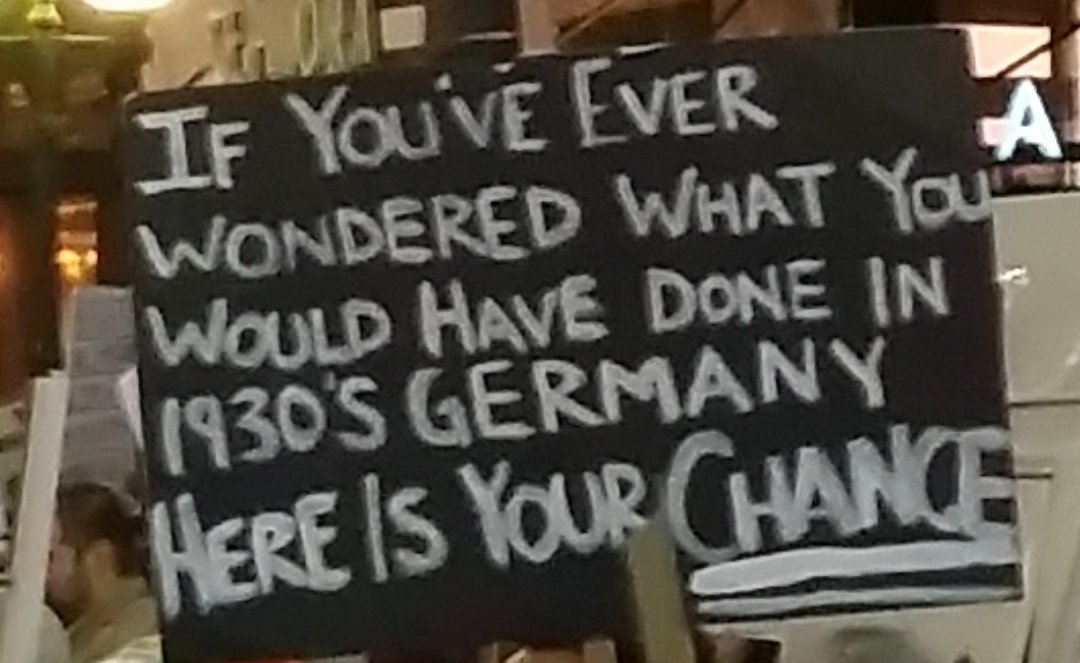 IF YOU'VE EVER
WONDERED WHAT YOU
WOULD HAVE DONE IN
1930'S GERMANY
HERE IS YOUR CHANCE
A